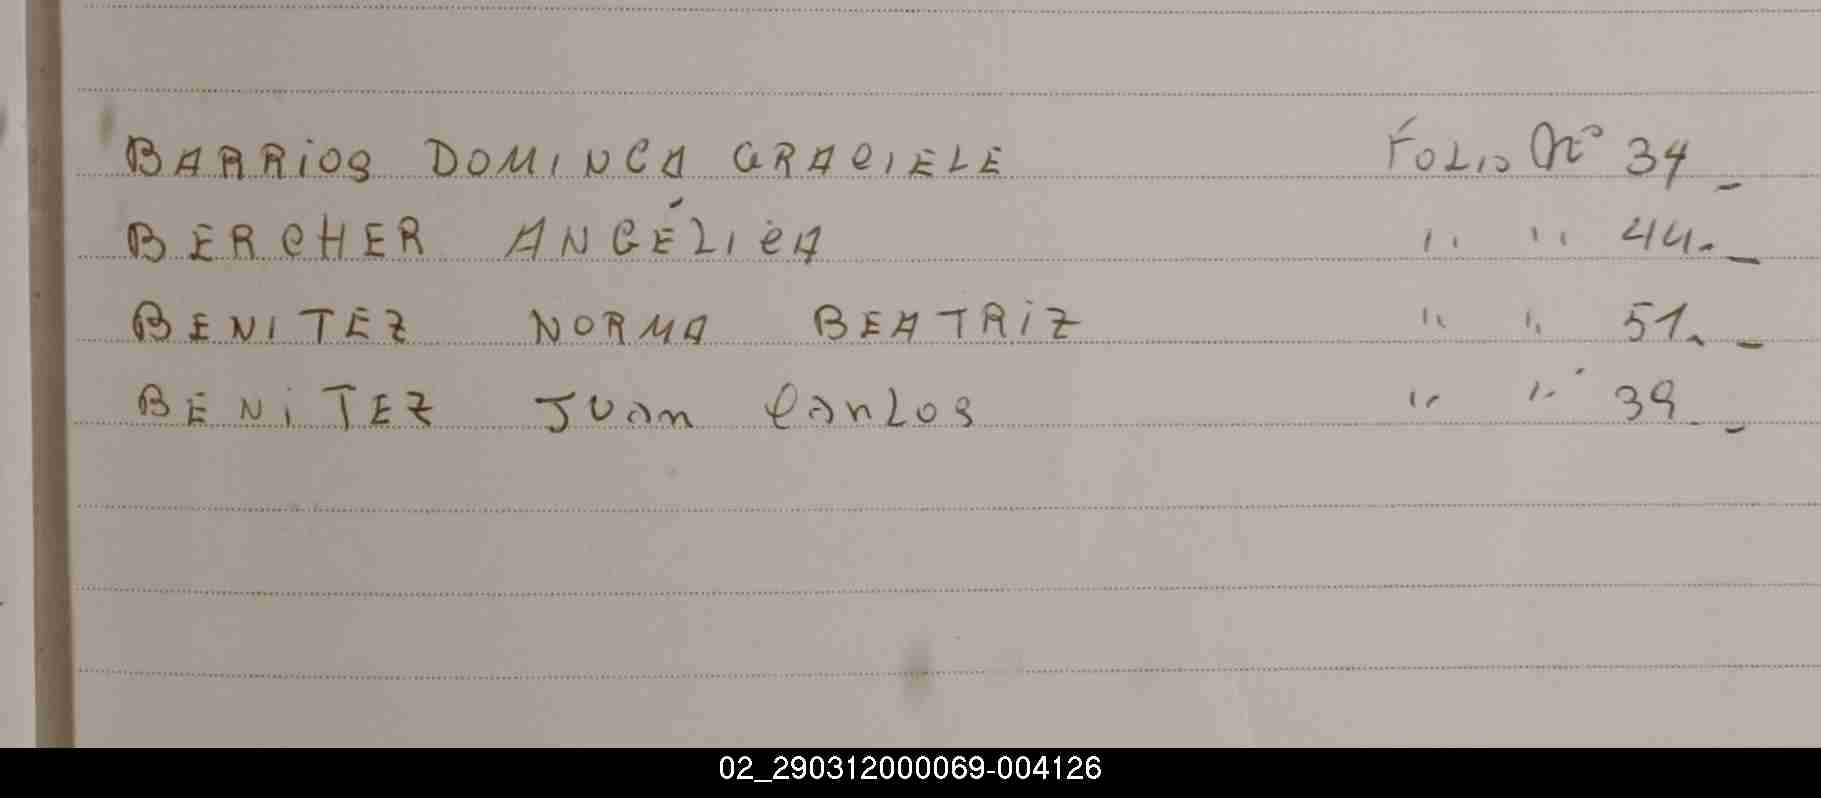 BARRIOS DOMINCA GRACIELE FOLIO Nº 34_
BERCHER ANGÉLICA " " 44._
BENITEZ NORMA BEATRIZ " " 51._
BENITEZ JUAN CARLOS " " 39_
02_290312000069-004126